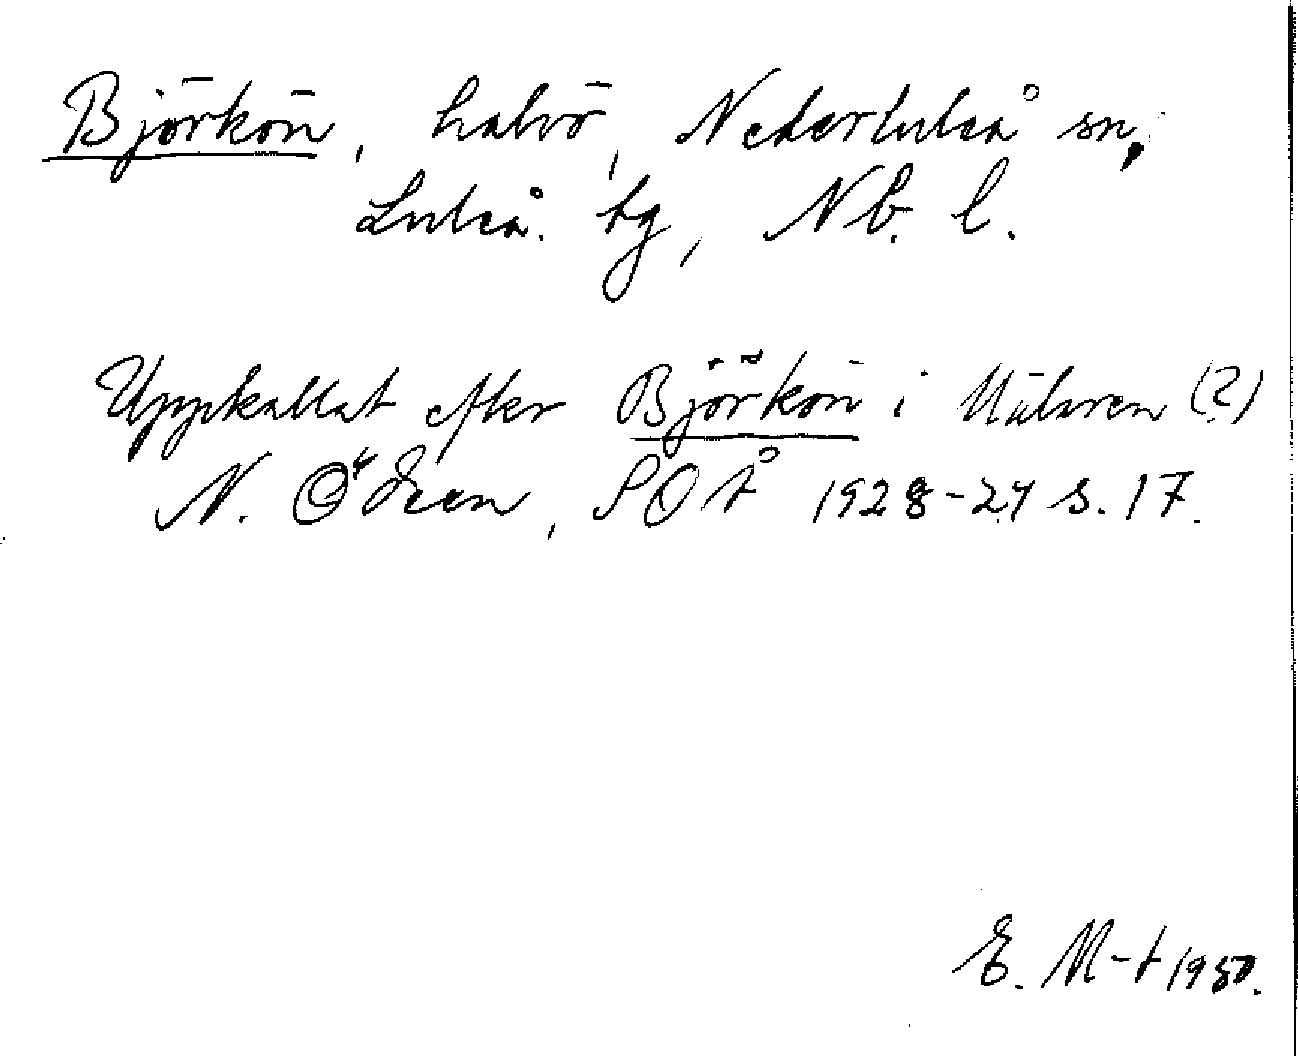 Björkön, halvö, Nederluleå sn,
Luleå tg, Nb. l.
Uppkallat efter Björkön i Mälaren (?)
N. Ödeen, SOÅ 1928-29 s. 17.
E. M-t 1980.